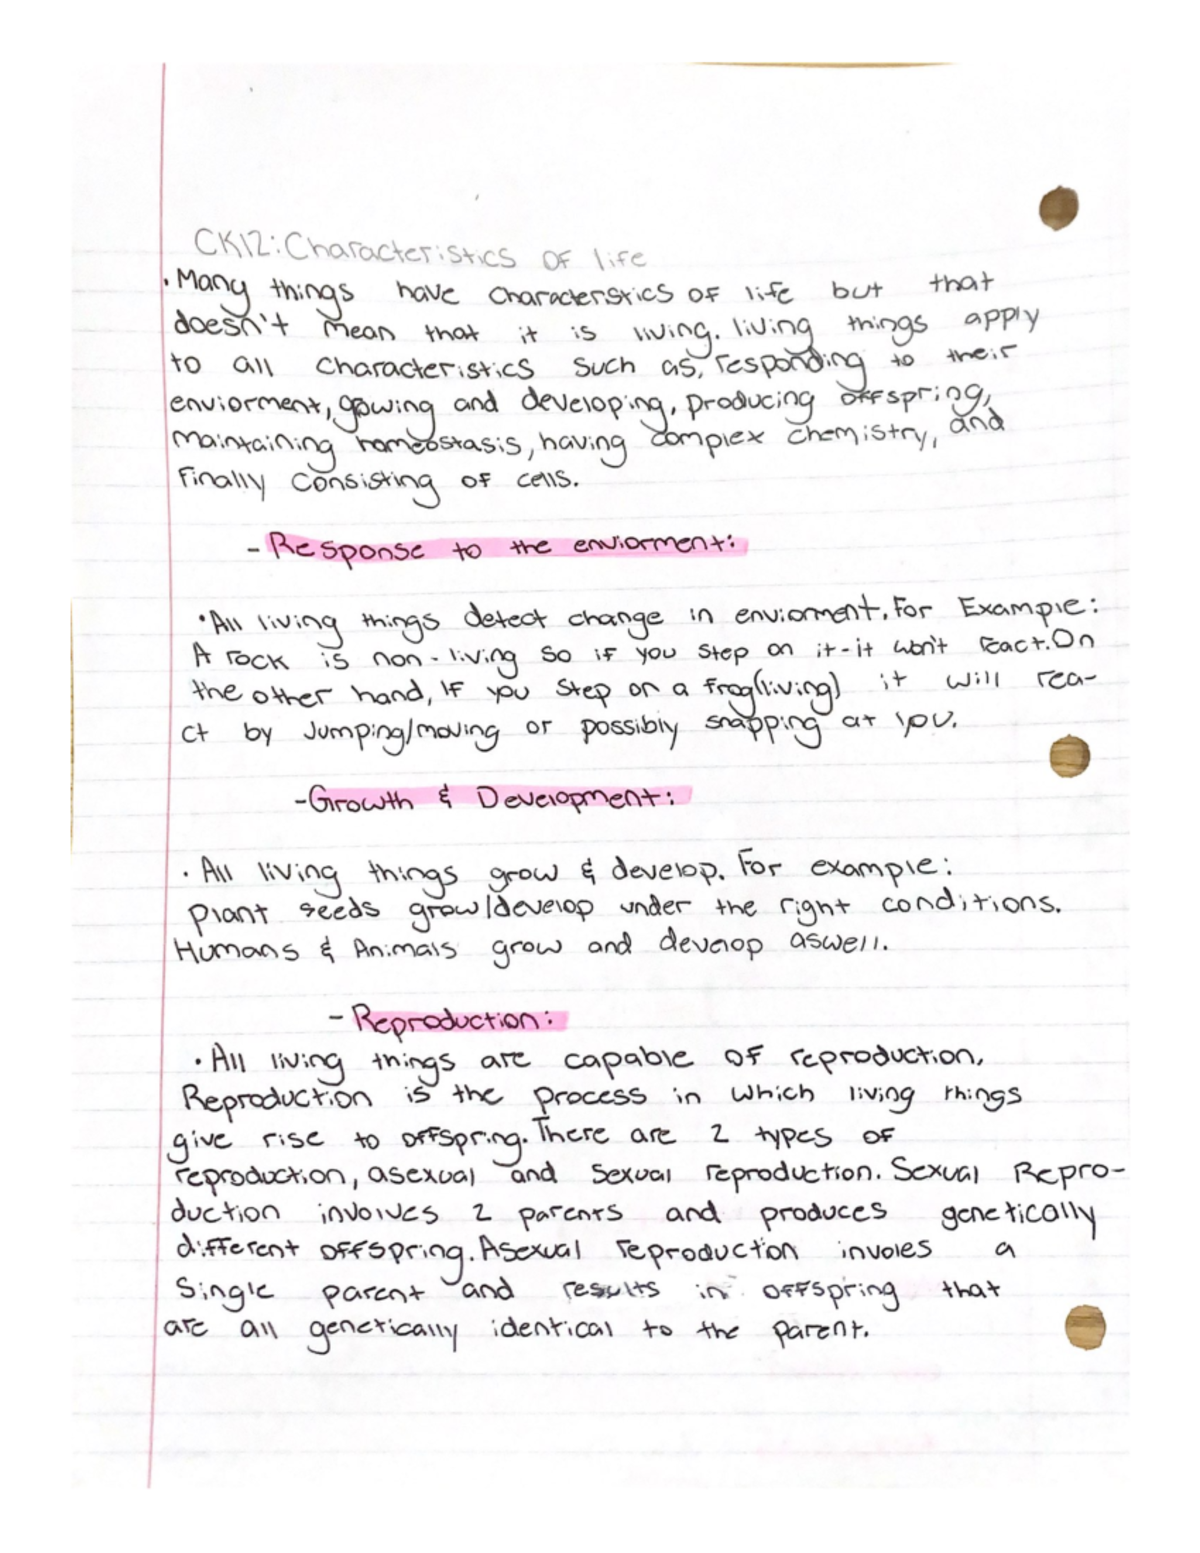 CK12: Characteristics of life
• Many things have characterstics of life but that
doesn't mean that it is living. living things apply
to all characteristics such as, responding to their
enviorment, gowing and developing, producing offspring,
maintaining homeostasis, having complex chemistry, and
finally consisting of cells.
- Response to the enviorment:
• All living things detect change in enviorment. For Example:
A rock is non-living so if you step on it-it won't react. On
the other hand, If you step on a frog(living) it will rea-
ct by Jumping/moving or possibly snapping at you.
- Growth & Development:
• All living things grow & develop. For example:
Plant seeds grow/develop under the right conditions.
Humans & Animals grow and develop aswell.
- Reproduction:
• All living things are capable of reproduction.
Reproduction is the process in which living things
give rise to offspring. There are 2 types of
reproduction, asexual and sexual reproduction. Sexual Repro-
duction involves 2 parents and produces genetically
different offspring. Asexual reproduction involes a
single parent and results in offspring that
are all genetically identical to the parent.